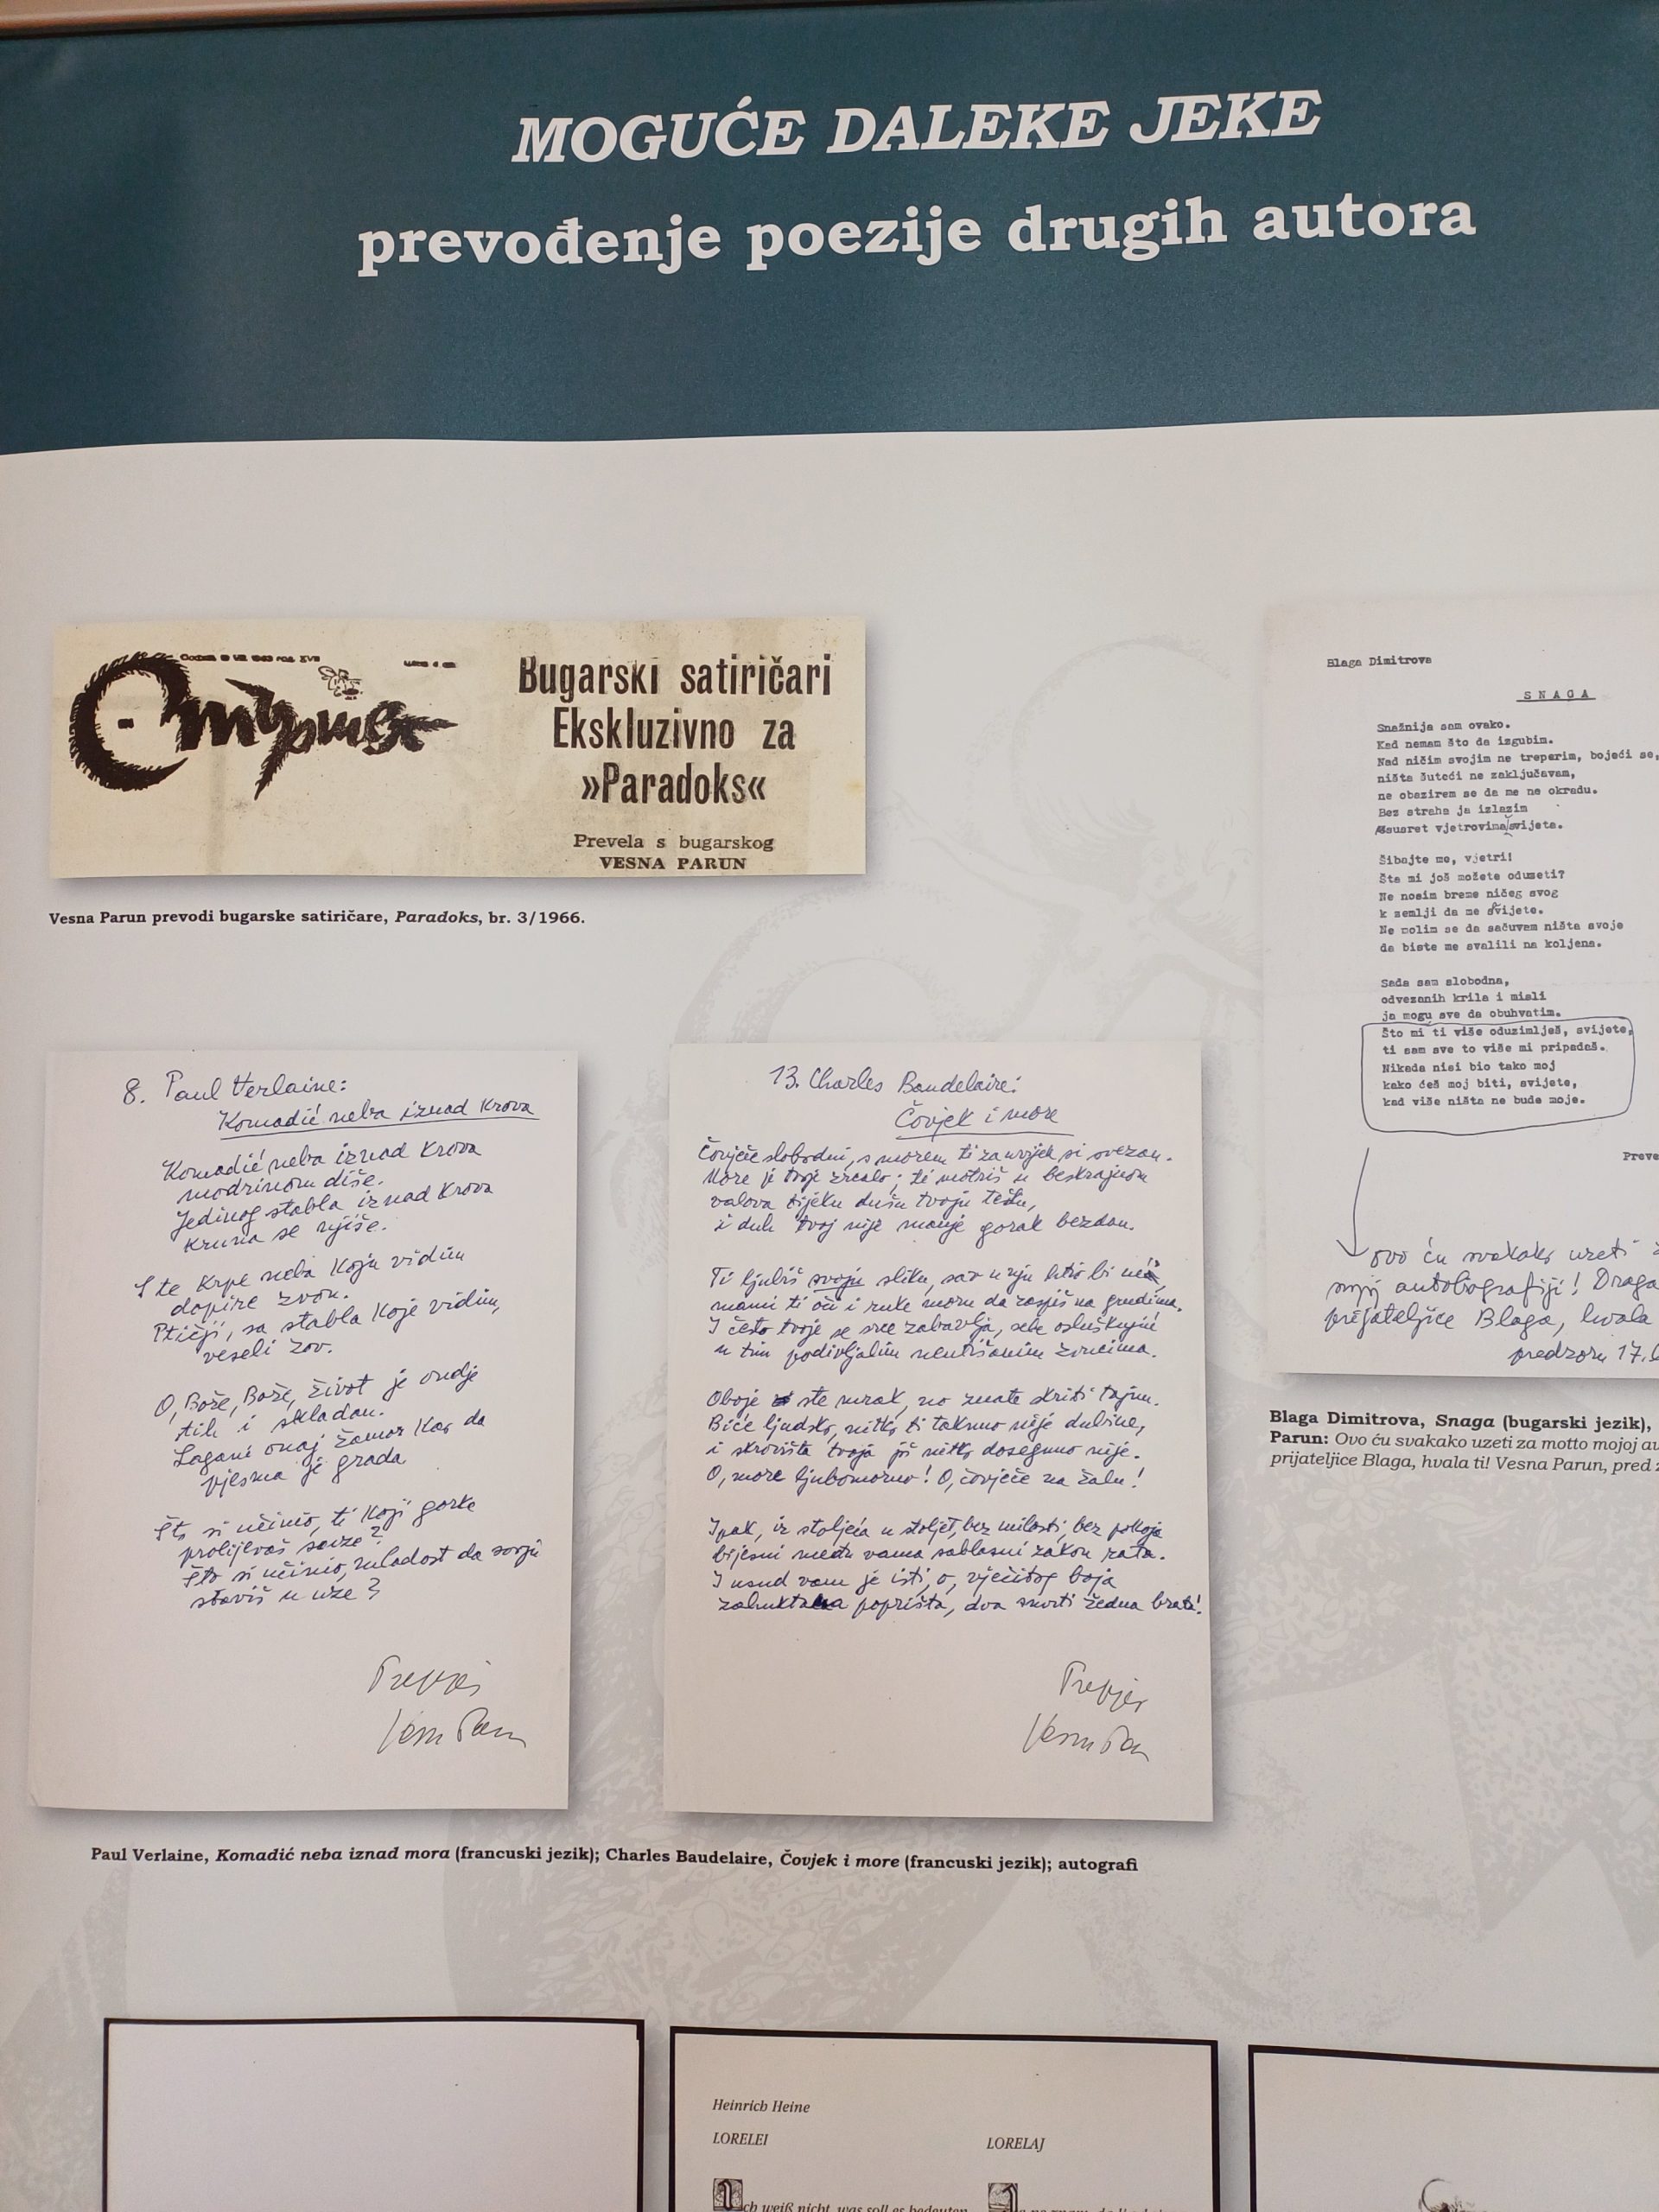 MOGUĆE DALEKE JEKE
prevođenje poezije drugih autora
Bugarski satiričari
Ekskluzivno za
»Paradoks«
Prevela s bugarskog
VESNA PARUN
Vesna Parun prevodi bugarske satiričare, Paradoks, br. 3/1966.
8. Paul Verlaine:
Komadić neba iznad krova
Komadić neba iznad krova
modrinom diše.
Jedinog stabla iznad krova
kruna se njiše.
S te krpe neba koju vidim
dopire zvon.
Ptičji, sa stabla koje vidim,
veseli zov.
O, Bože, Bože, život je ondje
tih i skladan.
Lagani onaj žamor kao da
pjesma je grada
Što si učinio, ti koji gorke
prolijevaš suze?
Što si učinio, mladost da svoju
staviš u uze?
Prepjev
Vesna Parun
13. Charles Baudelaire:
Čovjek i more
Čovječe slobodni, s morem ti zauvjek si svezan.
More je tvoje zrcalo; ti motriš u beskrajnom
valova tijeku dušu tvoju
i duh tvoj nije manje gorak bezdan.
Ti ljubiš svoju sliku, sav u nju htio bi
mami ti oči i ruke moru da zaspiš na grudima.
I često tvoje se srce zabavlja, sebe osluškujući
u tim podivljalim neutišanim zvucima.
Oboje ste mrak, no znate skriti tajnu.
Biće ljudsko, nitko ti taknuo nije dubine,
i skrovišta tvoja još nitko dosegnuo nije.
O, more ljubomorno! O, čovječe na žalu!
Ipak, iz stoljeća u stoljeć, bez milosti, bez pokoja
bijesni među vama sablasni zakon rata.
I usud vam je isti, o, vječitog boja
zahuktana poprišta, dva smrti žedna brata!
Prepjev
Vesna Parun
Paul Verlaine, Komadić neba iznad mora (francuski jezik); Charles Baudelaire, Čovjek i more (francuski jezik); autografi
Blaga Dimitrova
SNAGA
Snažnija sam ovako.
Kad nemam što da izgubim.
Nad ničim svojim ne treperim, bojeći se,
ništa šuteći ne zaključavam,
ne obazirem se da me ne okradu.
Bez straha ja izlazim
ususret vjetrovima svijeta.
Šibajte me, vjetri!
Šta mi još možete oduzeti?
Ne nosim breme ničeg svog
k zemlji da me svijete.
Ne molim se da sačuvam ništa svoje
da biste me svalili na koljena.
Sada sam slobodna,
odvezanih krila i misli
ja mogu sve da obuhvatim.
Što mi ti više oduzimlješ, svijete,
ti sam sve to više mi pripadaš.
Nikada nisi bio tako moj
kako ćeš moj biti, svijete,
kad više ništa ne bude moje.
Preve
ovo ću svakako uzeti
mojoj autobiografiji! Draga
prijateljice Blaga, hvala
predzoru 17.
Blaga Dimitrova, Snaga (bugarski jezik),
Parun: Ovo ću svakako uzeti za motto mojoj au
prijateljice Blaga, hvala ti! Vesna Parun, pred z
Heinrich Heine
LORELEI
LORELAJ
Ich weiß nicht, was soll es bedeuten